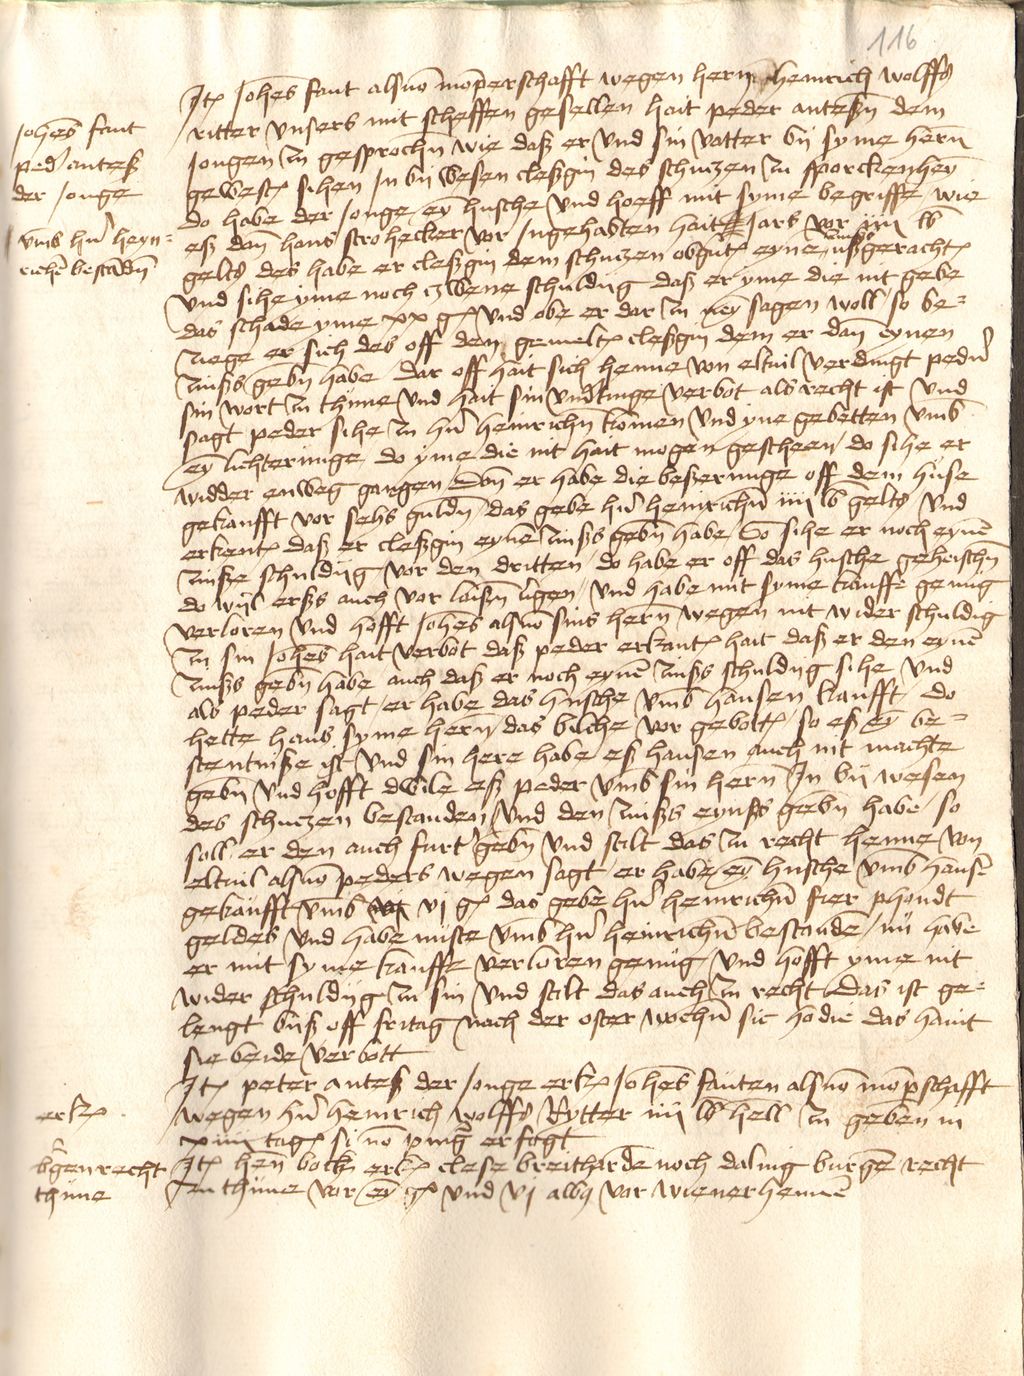 116
Johẽs faut
pedˀ anteß
der Jonge
vmb hñ heyn=
richẽ bestãdñ
Itꝫ Johẽs faut als võ momperschafft wegen hern Heinrich wolffs
ritter vnsers mit scheffen gesellen hait peder anteßñ dem
Jongen zu gesprochñ wie daß er vnd sin vatter bij syme hern
gewest sihen In bij wesen cleßgin des schutzen zu spoorckenheỹ
do habe der Jonge eỹ husche vnd hoeff mit syme begriffe wie
eß dañ hans strohecker vor Ingehabten haitt Jars vor iiii lb
gelts des habe er cleßgin dem schutzen obgñt eyne vßgeracht
vnd sihe yme noch zwene schuldig daß er yme die nit gebe
das schade yme xx gꝫ vnd obe er dar zu neỹ sagen woll so be=
ziege er sich des off den gemelt cleßgin dem er dañ eynen
zinßs gebñ habe dar off hait sich henne von eltuil verdingt pedˀn
sin wort zu thune vnd hait sin vnddinge verbot als recht ist vnd
sagt peder sihe zu hñ heinrichñ komen vnd yne gebetten vmb
eỹ lichterunge do yme die nit hait mogen gescheen do sihe er
widder enweg gangen Dañ er habe die beßerunge off dem huse
gekaufft vor sehs guldñ das gebe hñ heinrichñ iiii lb gelts vnd
erkent daß er cleßgin eynẽ zinßs gebñ habe So sihe er noch eynẽ
zinße schuldig vor den dritten do habe er off das husche geheischñ
do wijl erßs auch vor laißñ ligen vnd habe mit syme kauffe genug
verloren vnd hofft Johẽs als võ sins hern wegen nit wider schuldig
zu sin Johẽs hait verbot daß peder erkant hait daß er den eynẽ
zinßs gebñ habe auch daß er noch eynẽ zinßs schuldig sihe vnd
als peder sagt er habe das husche vmb hansen kaufft do
hette hans syme hern das bilche vor gebott so eß eỹ be=
stentniße ist vnd sin here habe eß hansen auch nit machte
gebñ vnd hofft dwile eß peder vmb sin hern In bij wesen
des schutzen bestanden vnd den zinßs eynßs gebñ habe so
soll er den auch furtˀ gebñ vnd stilt das zu recht henne von
eltuil als võ peders wegen sagt er habe eỹ husche vmb hansẽ
gekaufft vmb vj gꝫ das gebe hñ heinrichñ fier phondt
geldes vnd habe nuste vmb hñ heinrichñ bestande nũ habe
er mit syme kauffe verloren genug vnd hofft yme nit
wider schuldig zu sin vnd stilt das auch zu recht das ist ge=
lengt biß off fritag nach der oster wochñ sic hodie das haint
sie beide verbott
Itꝫ peter anteß der Jonge erkꝫ Johẽs fauten als võ mõpschafft
wegen hñ heinrich wolffs Rytter iiii lb hell zu geben in
xiiii tagꝫ si nõ pñg erfolgt
erkꝫ
Itꝫ heñ bock erkꝫ clese breitharde noch dalnig burgẽ recht
zu thune vor eỹ gꝫ vnd vj albꝫ vor wienerhennẽ
bˀgenrecht
thune